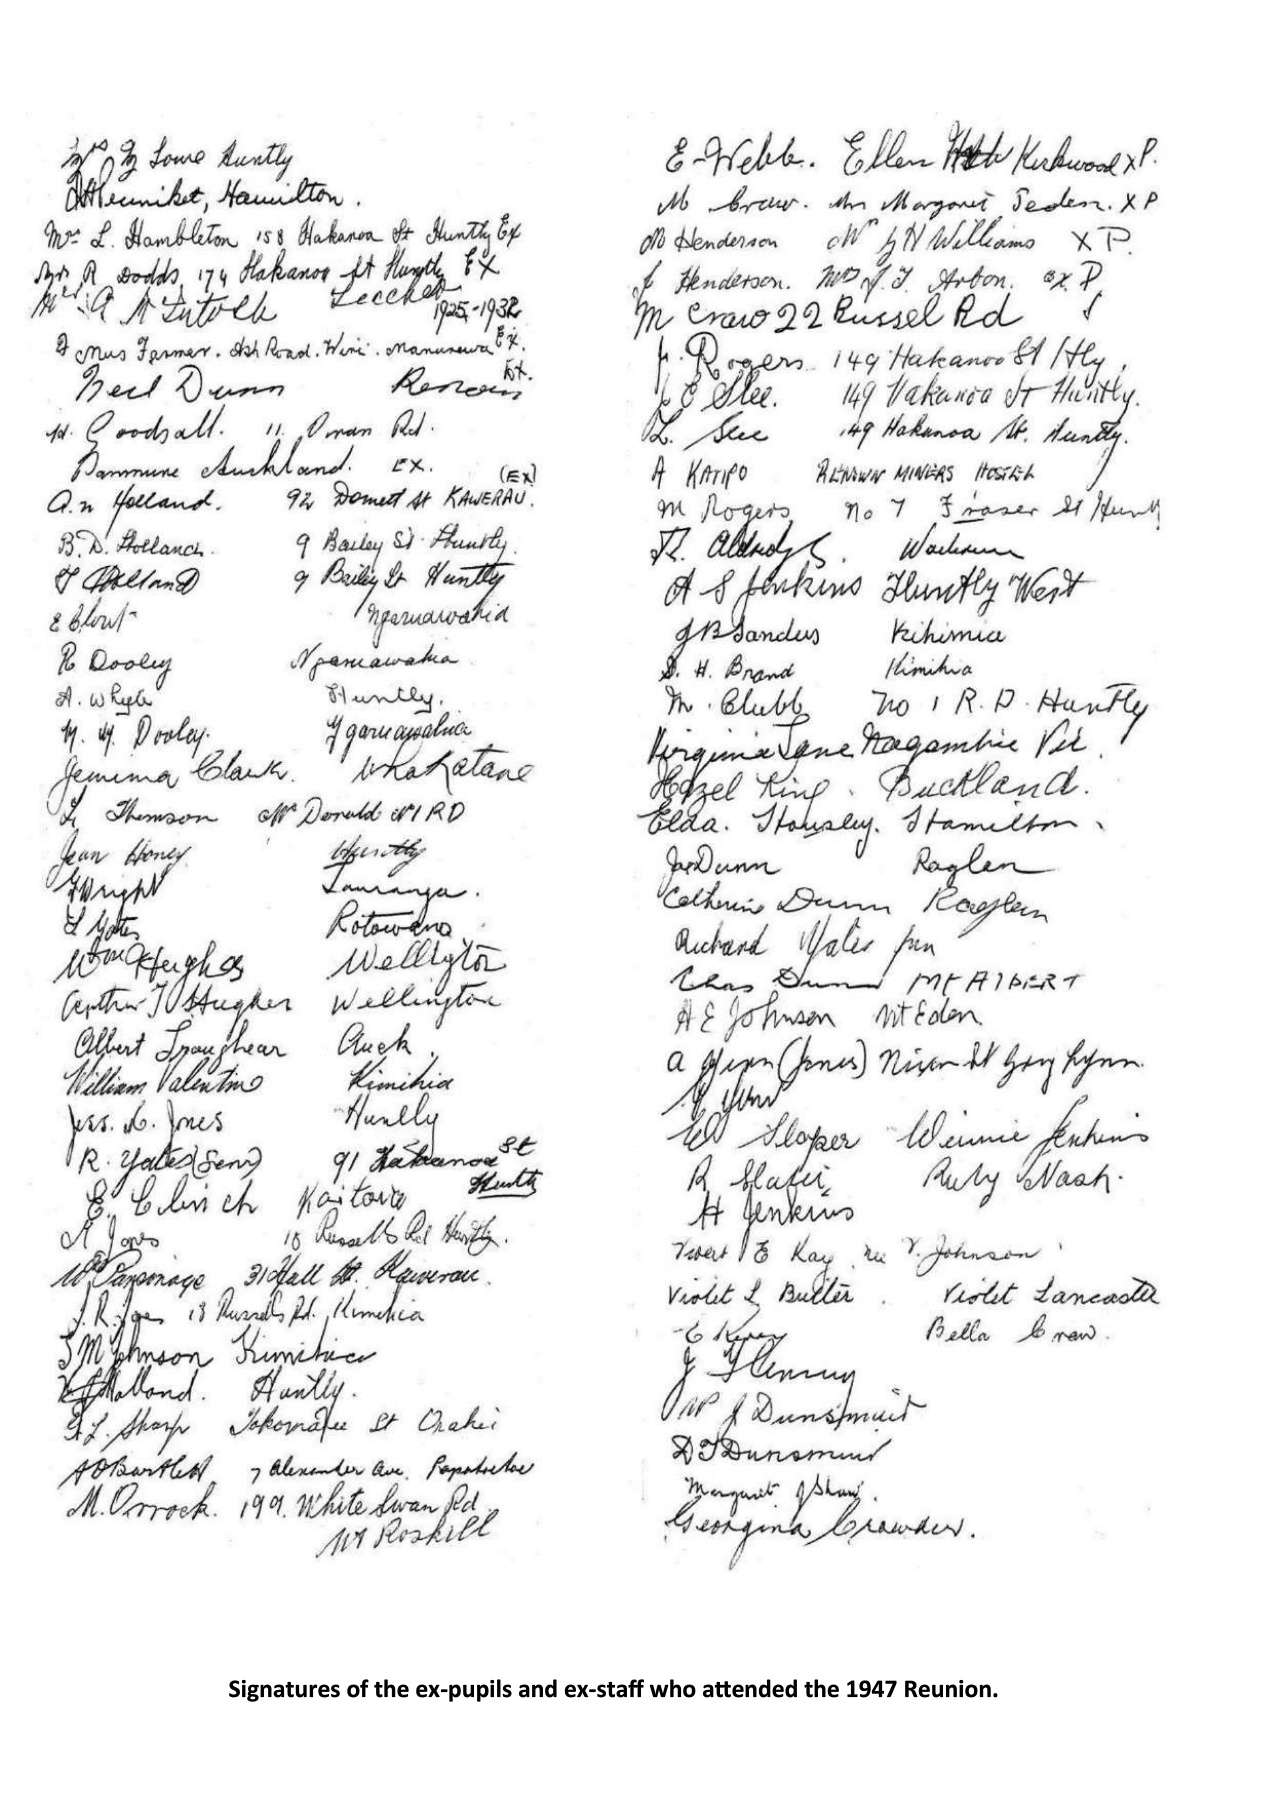 Mrs Lowe Huntly
Hamilton.
Mrs L. Hambleton 158 Hakanoa St Huntly Ex
Mrs R Dodds, 174 Hakanoa St Huntly EX
A
1925-1932
Mrs Farmer. Ash Road. Wiri. Manurewa Ex.
Neil Dunn Ex.
H. Goodsall. 11. Rd.
Auckland. EX.
(Ex)
A. n Holland. 92 Domett St KAWERAU.
B. D. Holland. 9 Bailey St. Huntly.
Holland 9 Bailey St Huntly
E Clout Ngaruawahia
R Dooley Ngaruawahia
A. Whyte Huntly.
M. Dooley. Ngaruawahia
Jemima Clark. Whakatane
L Thomson McDonald N 1 RD
Jean Honey Huntly
Wright Tauranga.
Yates Rotowaro.
Wm Hughes Welligton
Arthur J Hughes Wellington
Albert Auck.
William Valentine Kimihia
Jess. Jones Huntly
R. Yates (Senr) 91 Hakanoa St
Huntly
E. Clinch
A Jones 18 Russells Rd Huntly.
W Parsonage 31 Hall St. Kawerau.
J. R. Jones 18 Russells Rd. Kimihia
S M Johnson Kimihia
Holland. Huntly.
L. Sharp St Orakei
A D Bartlett 7 Alexander Ave. Papatoetoe
M. Orrock. 199. White Swan Rd
Mt Roskill
E-Webb. Ellen Kirkwood x P.
M Craw. Mrs Margaret X P
M Henderson Williams X P.
J Henderson. Mrs J. T. Arbon. ex. P
M Craw 22 Russel Rd
J. Rogers 149 Hakanoa St Hly.
J E Slee. 149 Hakanoa St Huntly.
L. Slee 149 Hakanoa St. Huntly.
A KATIPO RENOWN MINERS HOSTEL
M Rogers no 7 Fraser St
A S Jenkins Huntly West
J B Sanders Kihimia
H. Brand Kimihia
M. Clubb No 1 R. D. Huntly
Virginia Lane Nagambie Vic.
Hazel King. Buckland.
Elda. Hamilton.
Jas Dunn Raglan
Catherine Dunn Raglan
Richard Yates jun
Chas Dunn Mt AlBERT
H E Johnson Mt Eden.
A (Jones) St Grey Lynn.
W Sloper Winnie Jenkins
R Ruby Nash.
H Jenkins
E Kay nee V. Johnson
Violet L Butler. Violet Lancaster
E Bella Craw.
J Fleming
J Dunsmuir
D T Dunsmuir
Margaret J Shaw.
Georgina Crowder.
Signatures of the ex-pupils and ex-staff who attended the 1947 Reunion.